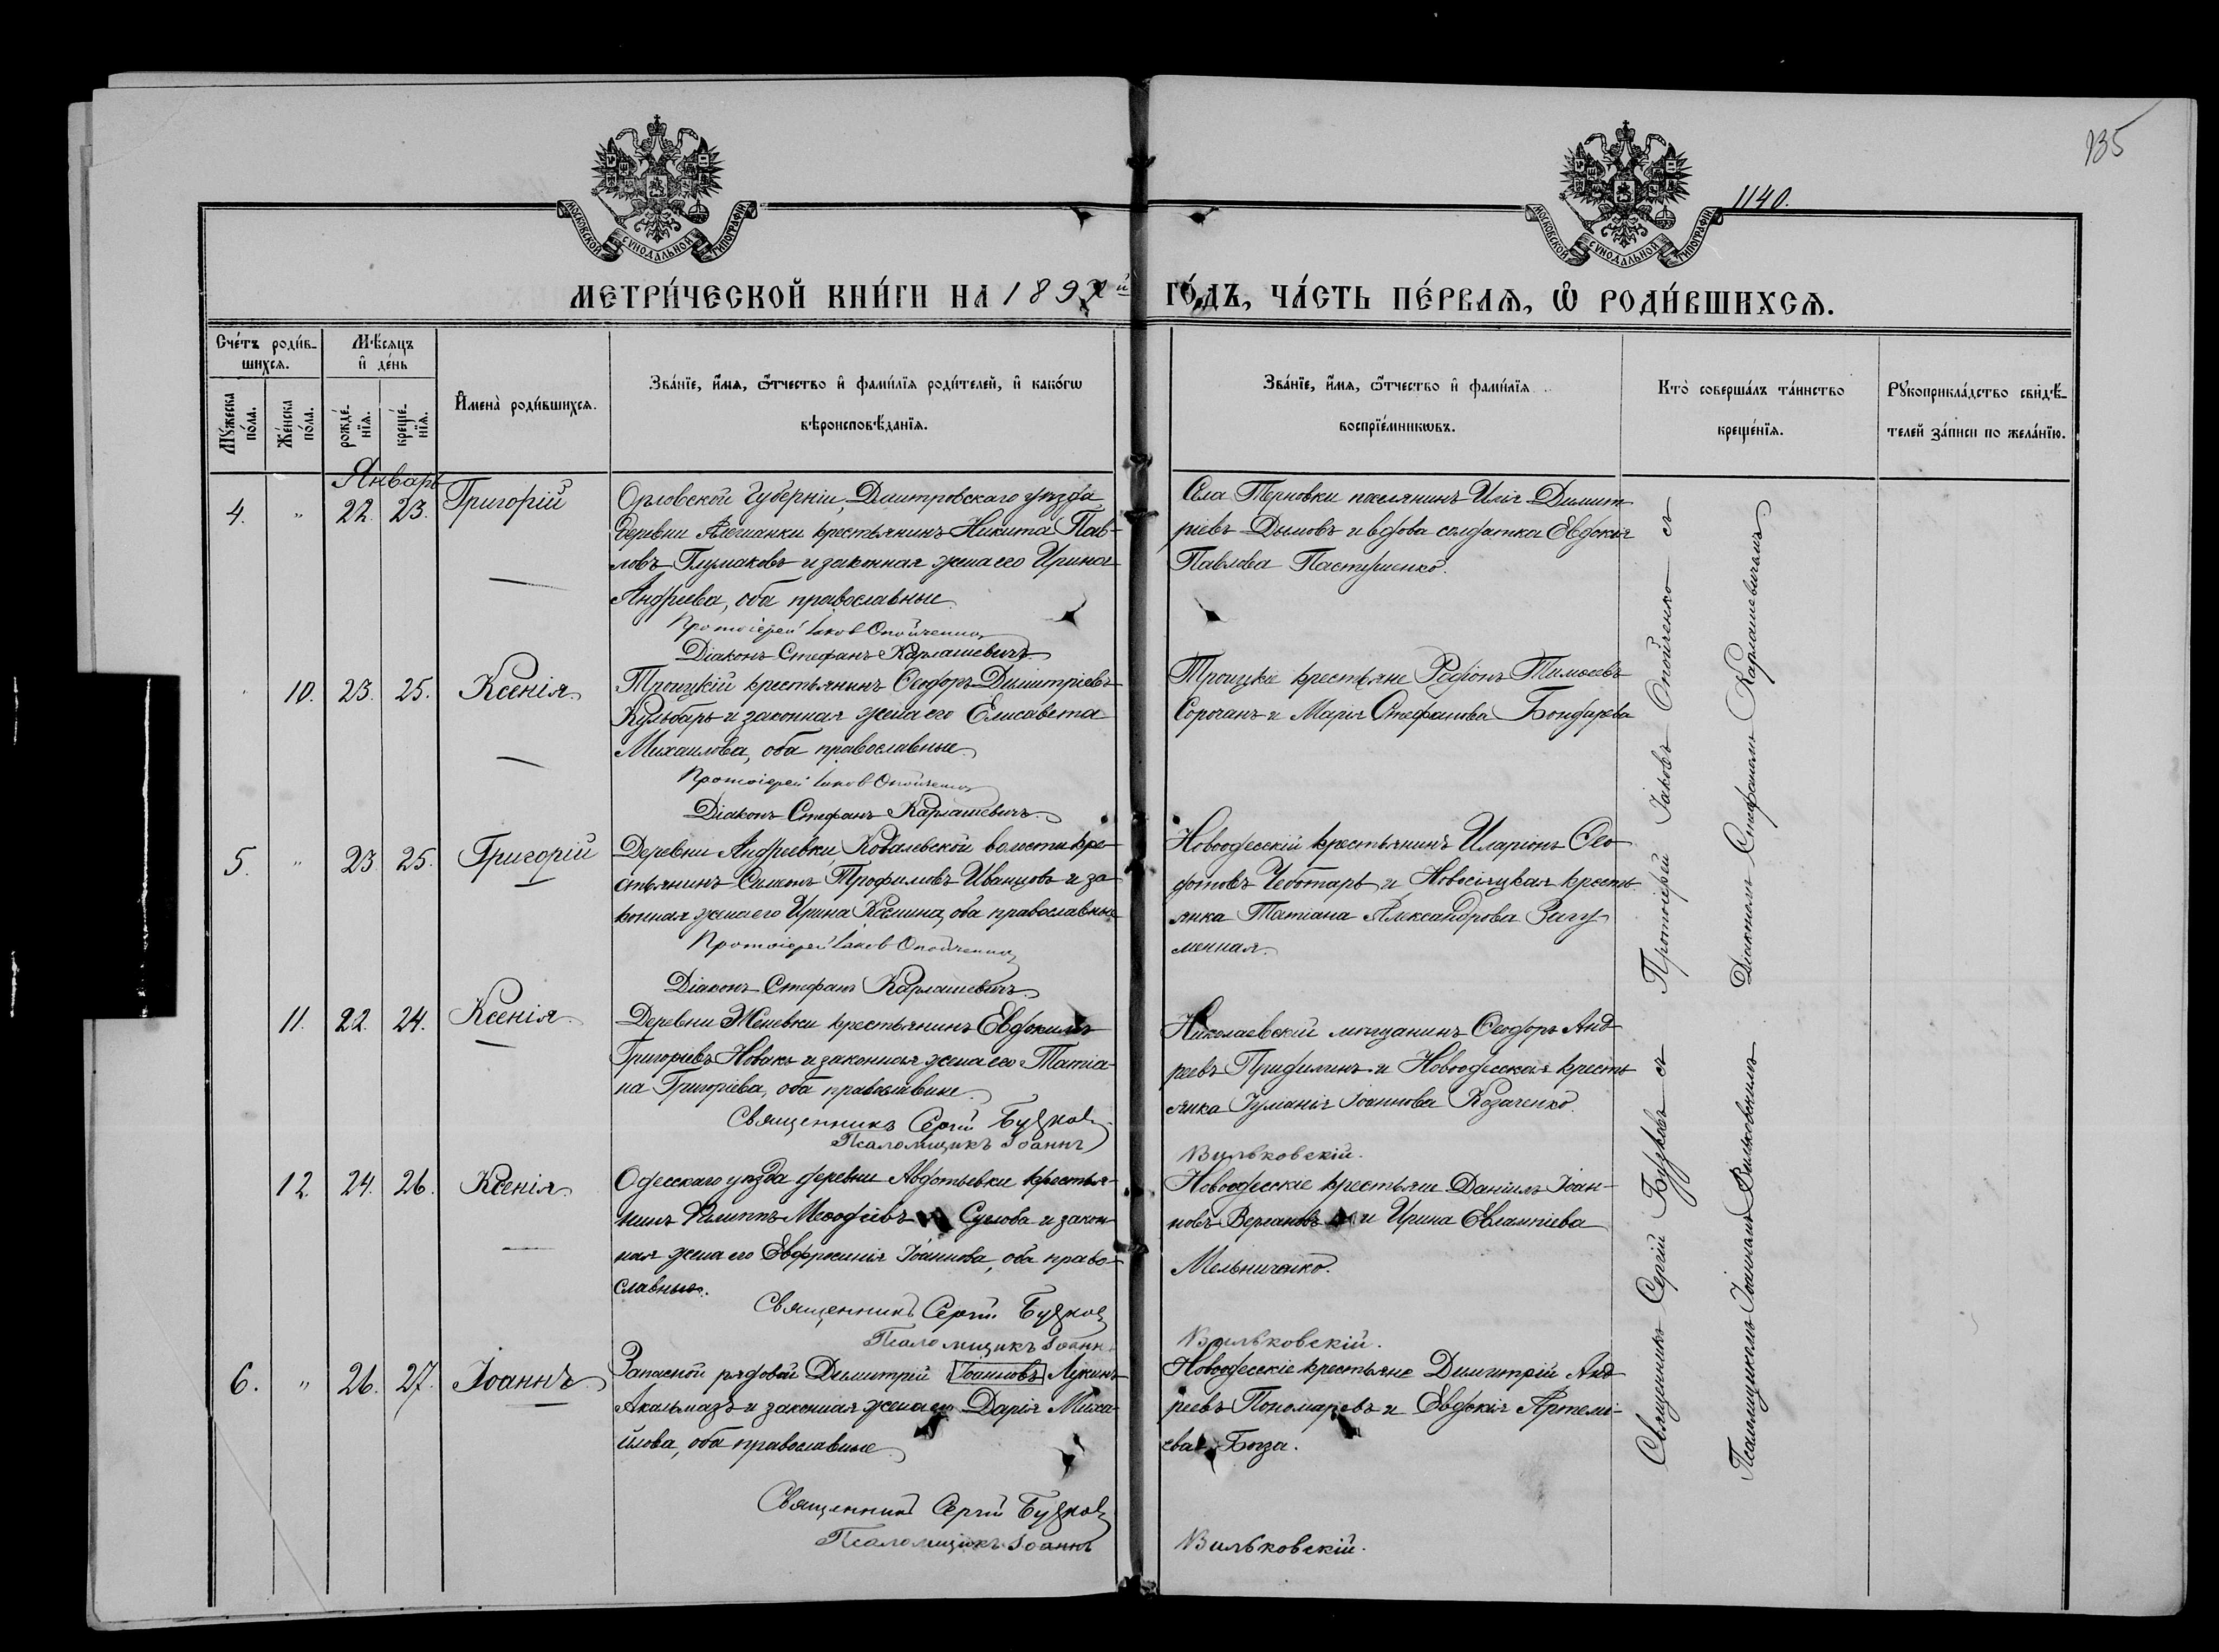 135
1140.
МОСКОВСКОЙ СУНОДАЛЬНОЙ ТИПОГРАФІИ
МОСКОВСКОЙ СУНОДАЛЬНОЙ ТИПОГРАФІИ
МЕТРИ́ЧЕСКОЙ КНИ́ГИ НА 189 й ГО́ДЪ, ЧА́СТЬ ПЕ́РВАѦ, Ѡ҆ РОДИ́ВШИХСѦ.
Сче́тъ роди́в-
шихсѧ.
Мѣ́сѧцъ
и҆ де́нь
Мꙋ́жеска по́ла.
Же́нска по́ла.
рожде́-нїѧ.
креще́-нїѧ.
И҆мена̀ роди́вшихсѧ.
Зва́нїе, и҆́мѧ, ѻ҆́тчество и҆ фами́лїѧ роди́телей, и҆ како́гѡ
вѣроисповѣ́данїѧ.
Зва́нїе, и҆́мѧ, ѻ҆́тчество и҆ фами́лїѧ
воспрїе́мникѡвъ.
Кто̀ соверша́лъ та́инство
креще́нїѧ.
Рꙋкоприкла́дство свидѣ́-
телей за́писи по жела́нїю.
Январь
4. " 22. 23. Григорій
Орловской Губерніи, Дмитровскаго уѣзда
деревни крестьянинъ Никита Пав-
ловъ Глумаковъ и законная жена его Ирина
Андреева, оба православные
Протоіерей Іаковъ Опойченко
Діаконъ Стефанъ Карлашевичъ
Села Терновки поселянинъ Илія Димит-
ріевъ Дымовъ и вдова солдатка Евдокія
Павлова Пастушенко.
10. 23. 25. Ксенія
Троицкій крестьянинъ Ѳеодоръ Димитріевъ
Кульбарь и законная жена его Елисавета
Михаилова, оба православные
Протоіерей Іаковъ Опойченко
Діаконъ Стефанъ Карлашевичъ
Троицкіе крестьяне Родіонъ Тимоѳеевъ
Сорочанъ и Марія Стефанова Бондарева
5. " 23 25. Григорій
Деревни Андреевки, Ковалевской волости кре-
стьянинъ Симонъ Трофимовъ Иванцовъ и за-
конная жена его Ирина Козмина, оба православные
Протоіерей Іаковъ Опойченко
Діаконъ Стефанъ Карлашевичъ
Новоодесскій крестьянинъ Иларіонъ Ѳео-
дотовъ Чеботарь и Новосѣлцкая кресть-
янка Татіана Александрова Загу-
менная.
11. 22. 24. Ксенія
Деревни Женевки крестьянинъ Евдокимъ
Григоріевъ Новакъ и законная жена его Татіа-
на Григоріева, оба православные
Священникъ Сергій Будковъ
Псаломщикъ Іоаннъ Вильковскій.
Николаевскій мѣщанинъ Ѳеодоръ Анд-
реевъ и Новоодесская кресть-
янка Іуліанія Іоаннова Козаченко.
12. 24. 26. Ксенія
Одесскаго уѣзда деревни Авдотьевки крестья-
нинъ Филиппъ Меѳодіевъ Суслова и закон-
ная жена его Евфросинія Іоаннова, оба право-
славные.
Священникъ Сергій Будковъ
Псаломщикъ Іоаннъ Вильковскій.
Новоодесскіе крестьяне Даніилъ Іоан-
новъ и Ирина Евлампіева
Мельниченко.
6. " 26. 27. Іоаннъ
Запасной рядовой Димитрій Іоанновъ Лукинъ
Акальмазъ и законная жена его Дарія Миха-
йлова, оба православные
Священникъ Сергій Будковъ
Псаломщикъ Іоаннъ Вильковскій.
Новоодесскіе крестьяне Димитрій Анд-
реевъ Пономаревъ и Евдокія Артемі-
ева Бѣгза.
Протоіерей Іаковъ Опойченко съ
Діакономъ Стефаномъ Карлашевичемъ
Священникъ Сергій Будковъ съ
Псаломщикомъ Іоанномъ Вильковскимъ